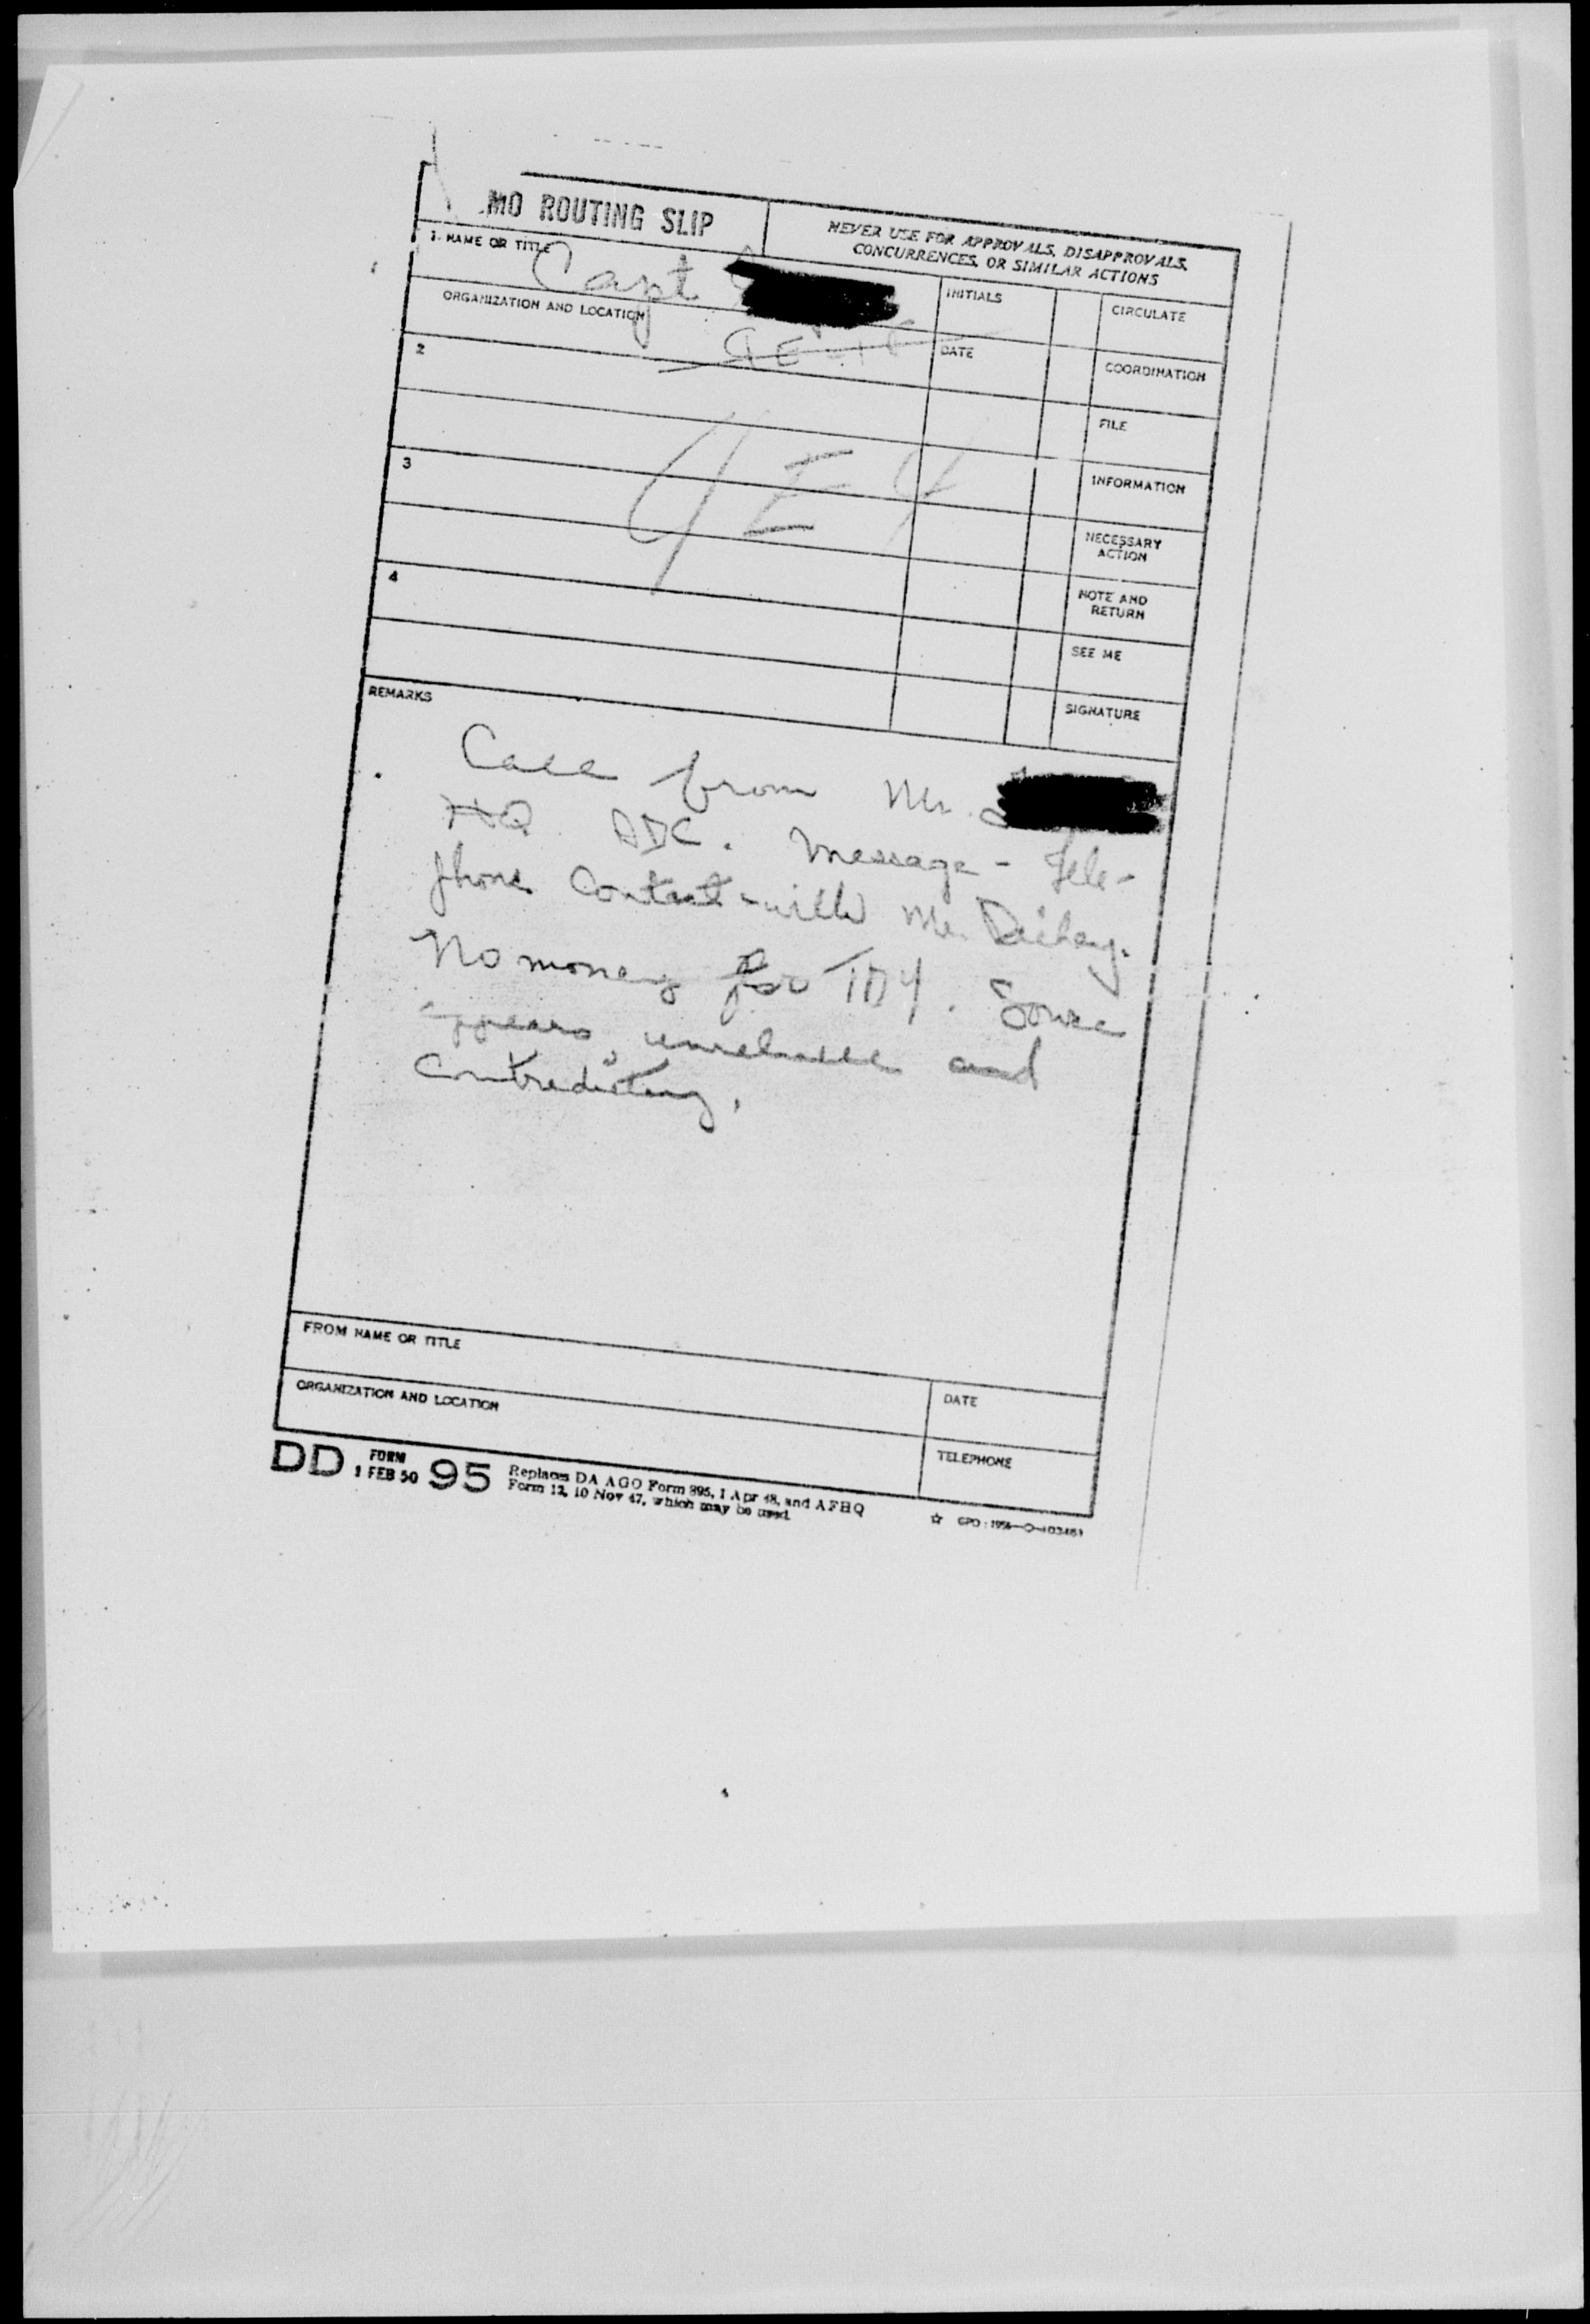 MO ROUTING SLIP
NEVER USE FOR APPROVALS, DISAPPROVALS,
CONCURRENCES, OR SIMILAR ACTIONS
1. NAME OR TITLE
Capt
INITIALS
CIRCULATE
ORGANIZATION AND LOCATION
DATE
COORDINATION
2
FILE
4E4
INFORMATION
3
NECESSARY
ACTION
NOTE AND
RETURN
4
SEE ME
SIGNATURE
REMARKS
Call from Mr.
HQ ADC. Message - Tele-
phone Contact with Mr.
No money for TDY. Source
appears unreliable and
contradicting.
FROM NAME OR TITLE
DATE
ORGANIZATION AND LOCATION
TELEPHONE
DD FORM 1 FEB 50 95 Replaces DA AGO Form 895, 1 Apr 48, and AFHQ
Form 12, 10 Nov 47, which may be used.
☆ GPO: 1956-O-403461